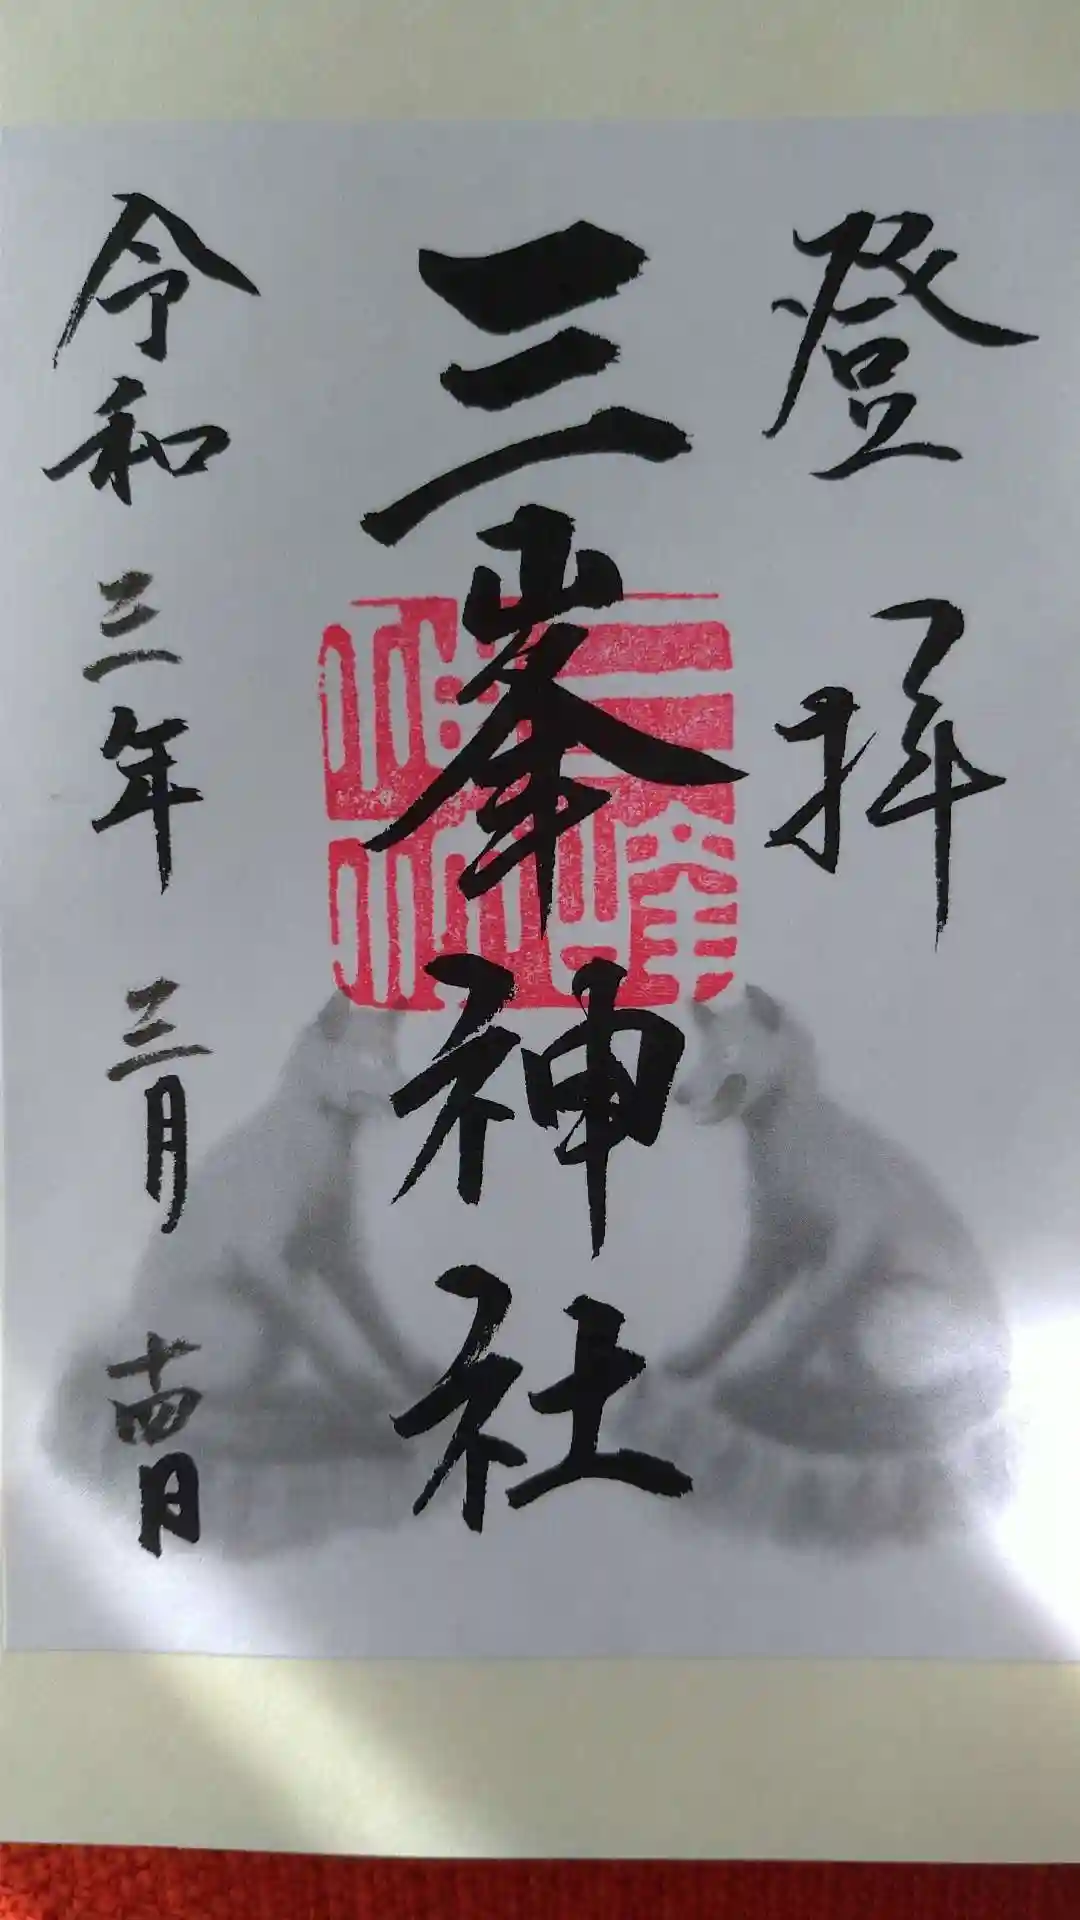 登拝
三峯神社
令和三年三月十四日